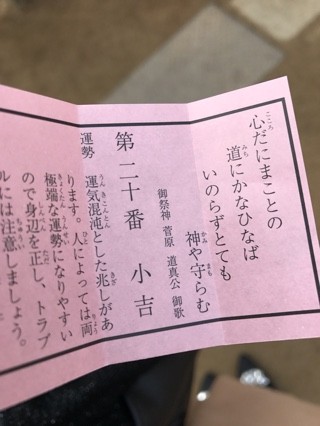 心だにまことの
道にかなひなば
いのらずとても
神や守らむ
御祭神 菅原 道真公 御歌
第二十番 小吉
運勢 運気混沌とした兆しがあ
ります。人によっては両
極端な運勢になりやすい
ので身辺を正し、トラブ
ルには注意しましょう。